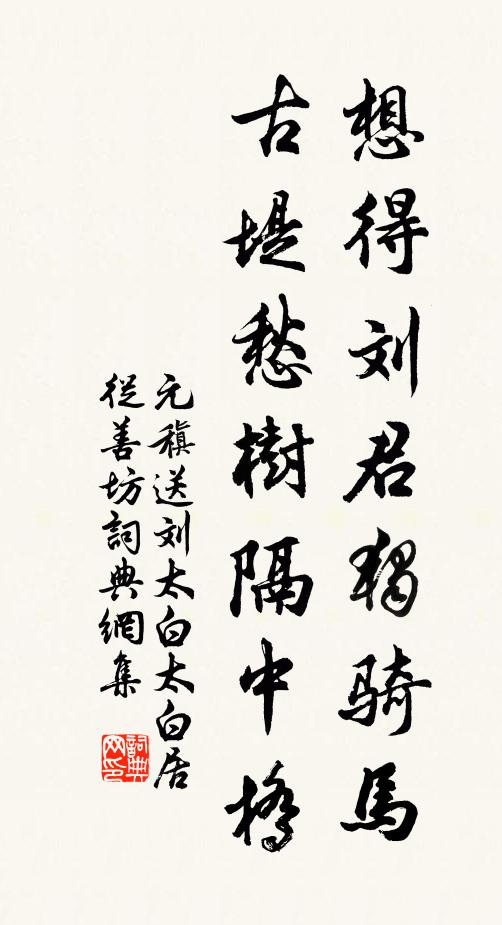 想得刘君独骑馬
古堤愁樹隔中橋
元稹送刘太白太白居
從善坊詞典網集
詞典网印